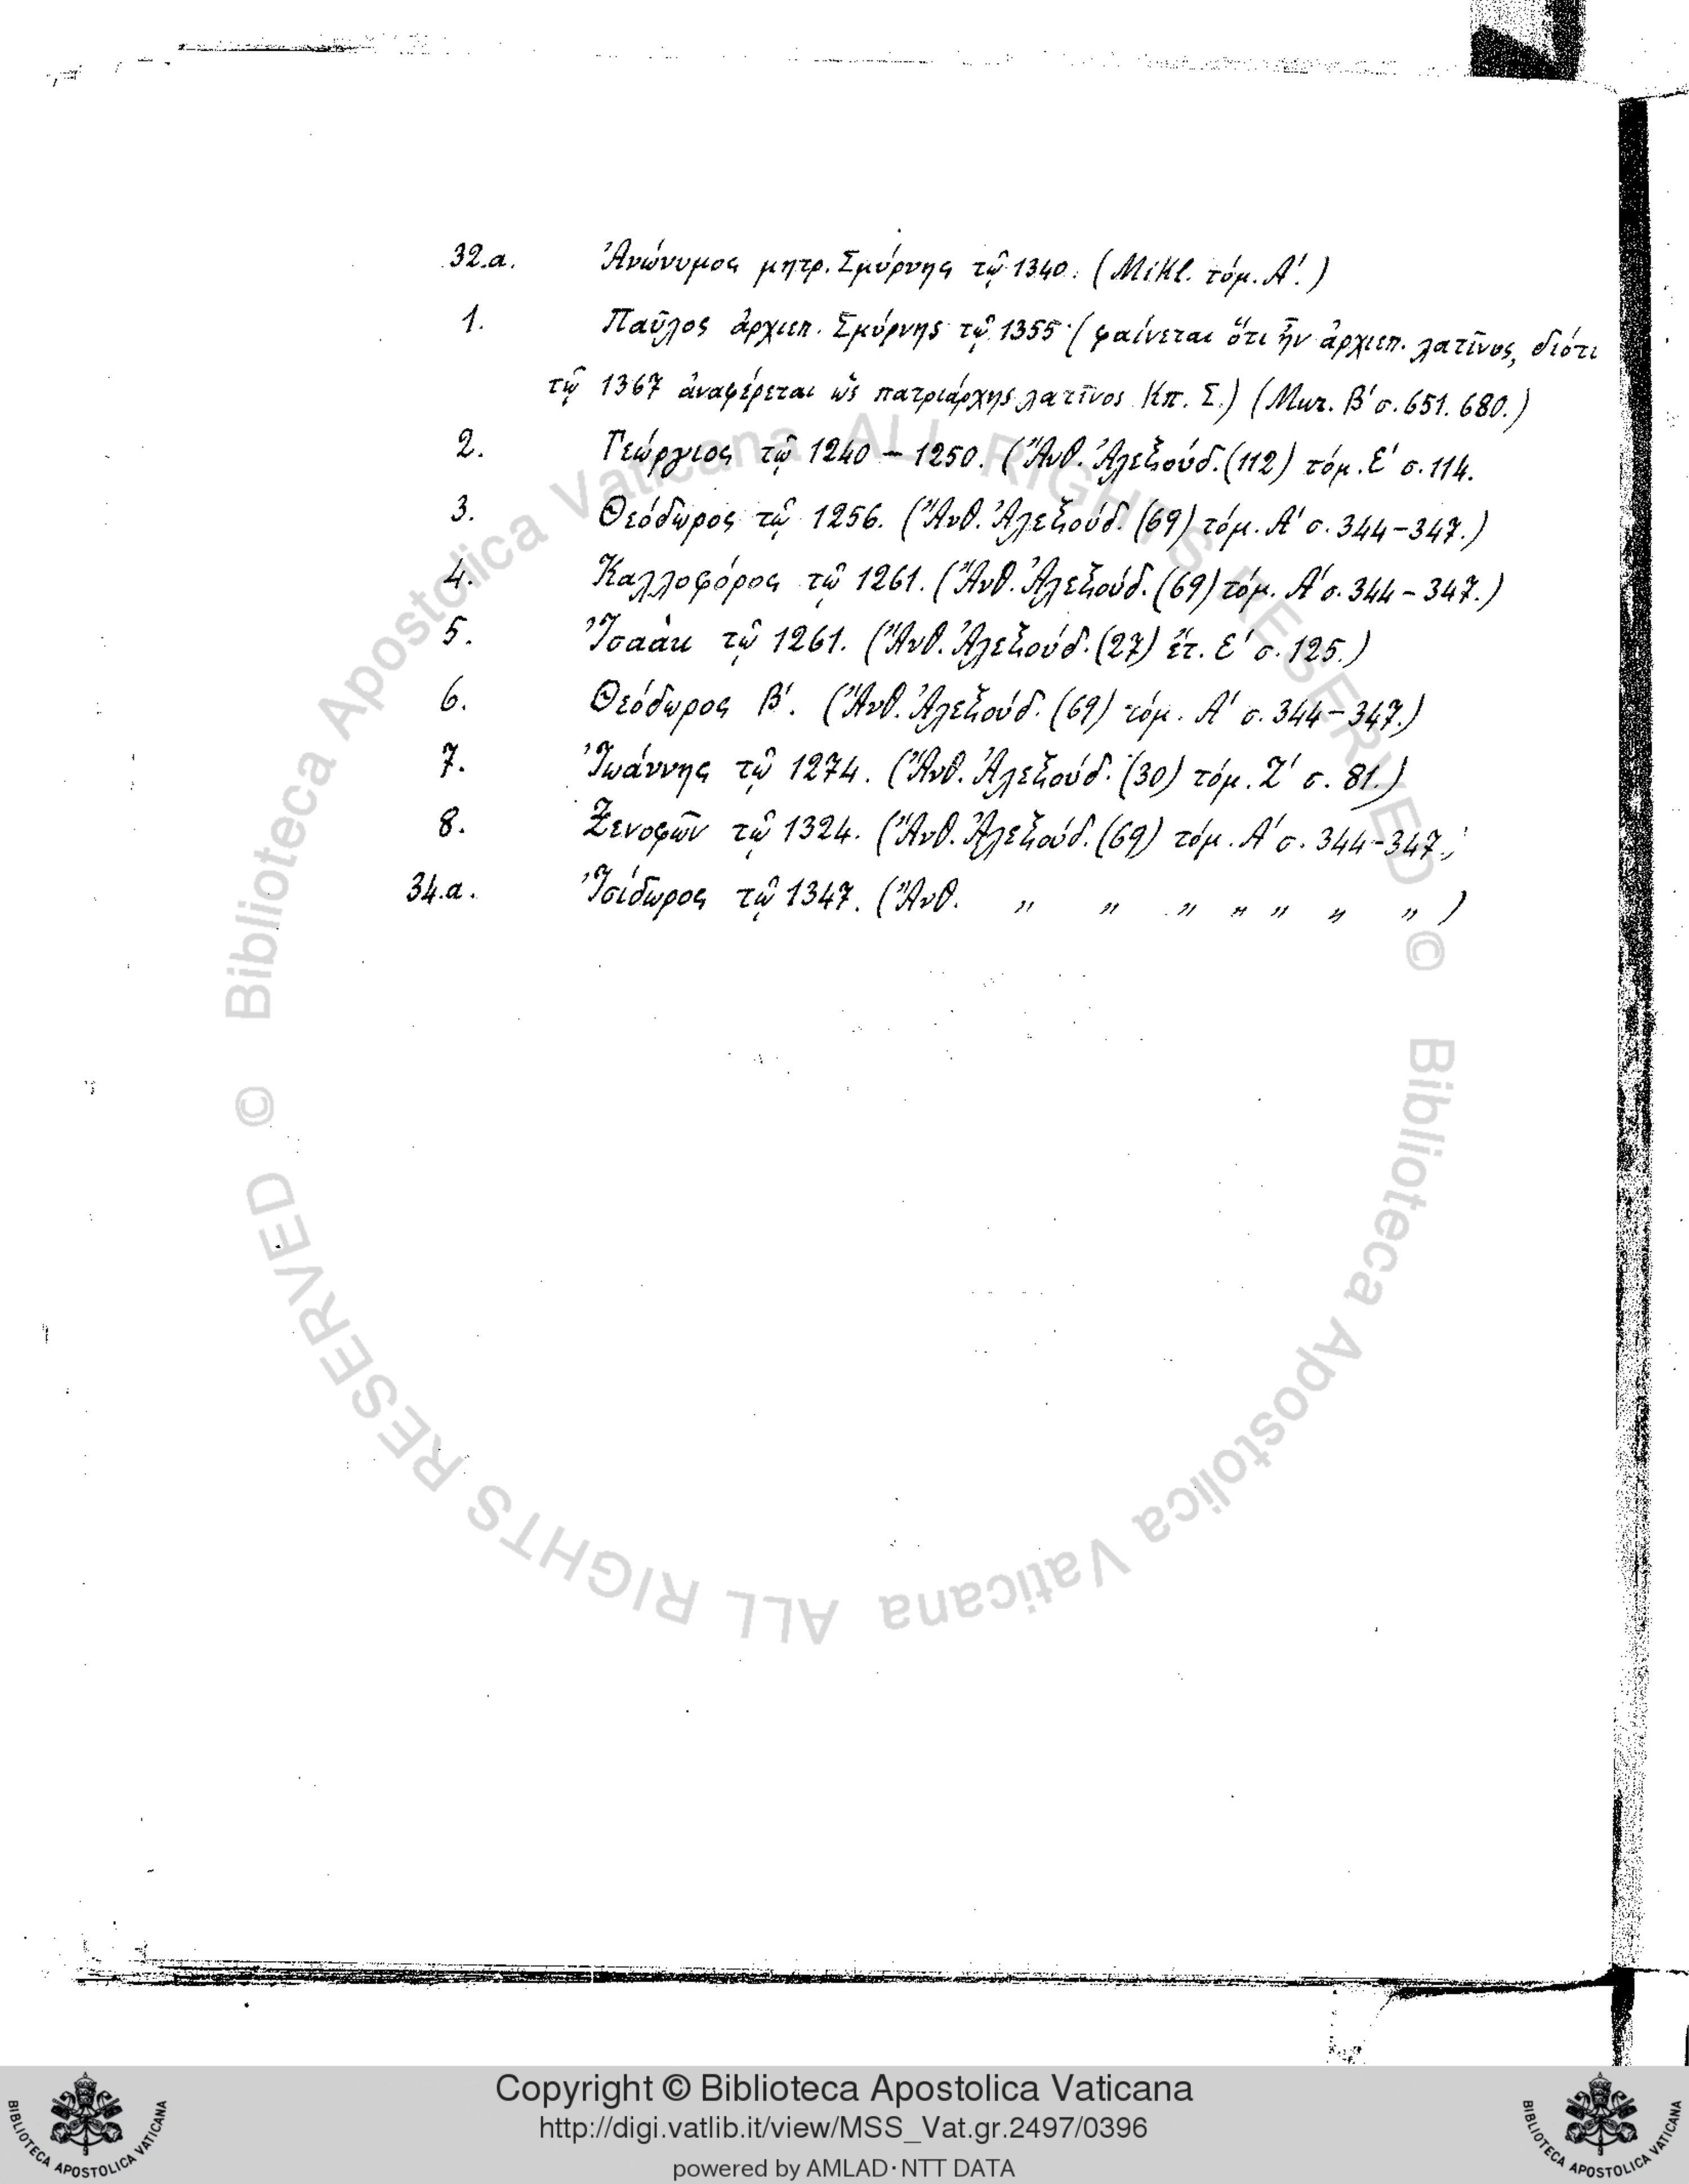 32.α. Ἀνώνυμος μητρ. Σμύρνης τῷ 1340. (Mikl. τόμ. Α'.)
1. Παῦλος ἀρχιεπ. Σμύρνης τῷ 1355 (φαίνεται ὅτι ἦν ἀρχιεπ. λατῖνος, διότι
τῷ 1367 ἀναφέρεται ὡς πατριάρχης λατῖνος Κπ. Σ.) (Μυτ. Β' σ. 651. 680.)
2. Γεώργιος τῷ 1240 – 1250. (Ἄνθ. Ἀλεξούδ. (112) τόμ. Ε' σ. 114.
3. Θεόδωρος τῷ 1256. (Ἄνθ. Ἀλεξούδ. (69) τόμ. Α' σ. 344-347.)
4. Καλλοφόρος τῷ 1261. (Ἄνθ. Ἀλεξούδ. (69) τόμ. Α' σ. 344-347.)
5. Ἰσαὰκ τῷ 1261. (Ἄνθ. Ἀλεξούδ. (27) ἔτ. Ε' σ. 125.)
6. Θεόδωρος Β'. (Ἄνθ. Ἀλεξούδ. (69) τόμ. Α' σ. 344-347.)
7. Ἰωάννης τῷ 1274. (Ἄνθ. Ἀλεξούδ. (30) τόμ. Ζ' σ. 81.)
8. Ξενοφῶν τῷ 1324. (Ἄνθ. Ἀλεξούδ. (69) τόμ. Α' σ. 344-347.)
34.α. Ἰσίδωρος τῷ 1347. (Ἄνθ. " " " " " " " )
© Biblioteca Apostolica Vaticana ALL RIGHTS RESERVED
© Biblioteca Apostolica Vaticana ALL RIGHTS RESERVED
Copyright © Biblioteca Apostolica Vaticana
http://digi.vatlib.it/view/MSS_Vat.gr.2497/0396
powered by AMLAD·NTT DATA
BIBLIOTECA APOSTOLICA VATICANA
BIBLIOTECA APOSTOLICA VATICANA